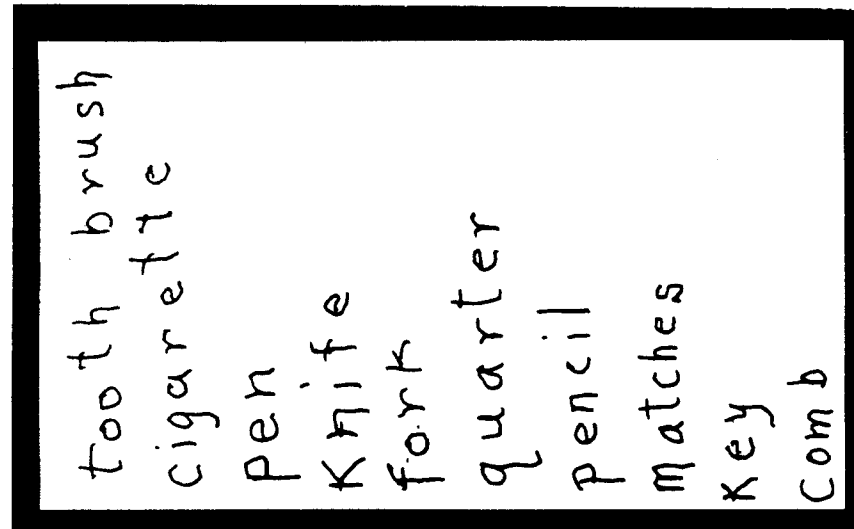 tooth brush
cigarette
pen
Knife
fork
quarter
pencil
matches
Key
comb